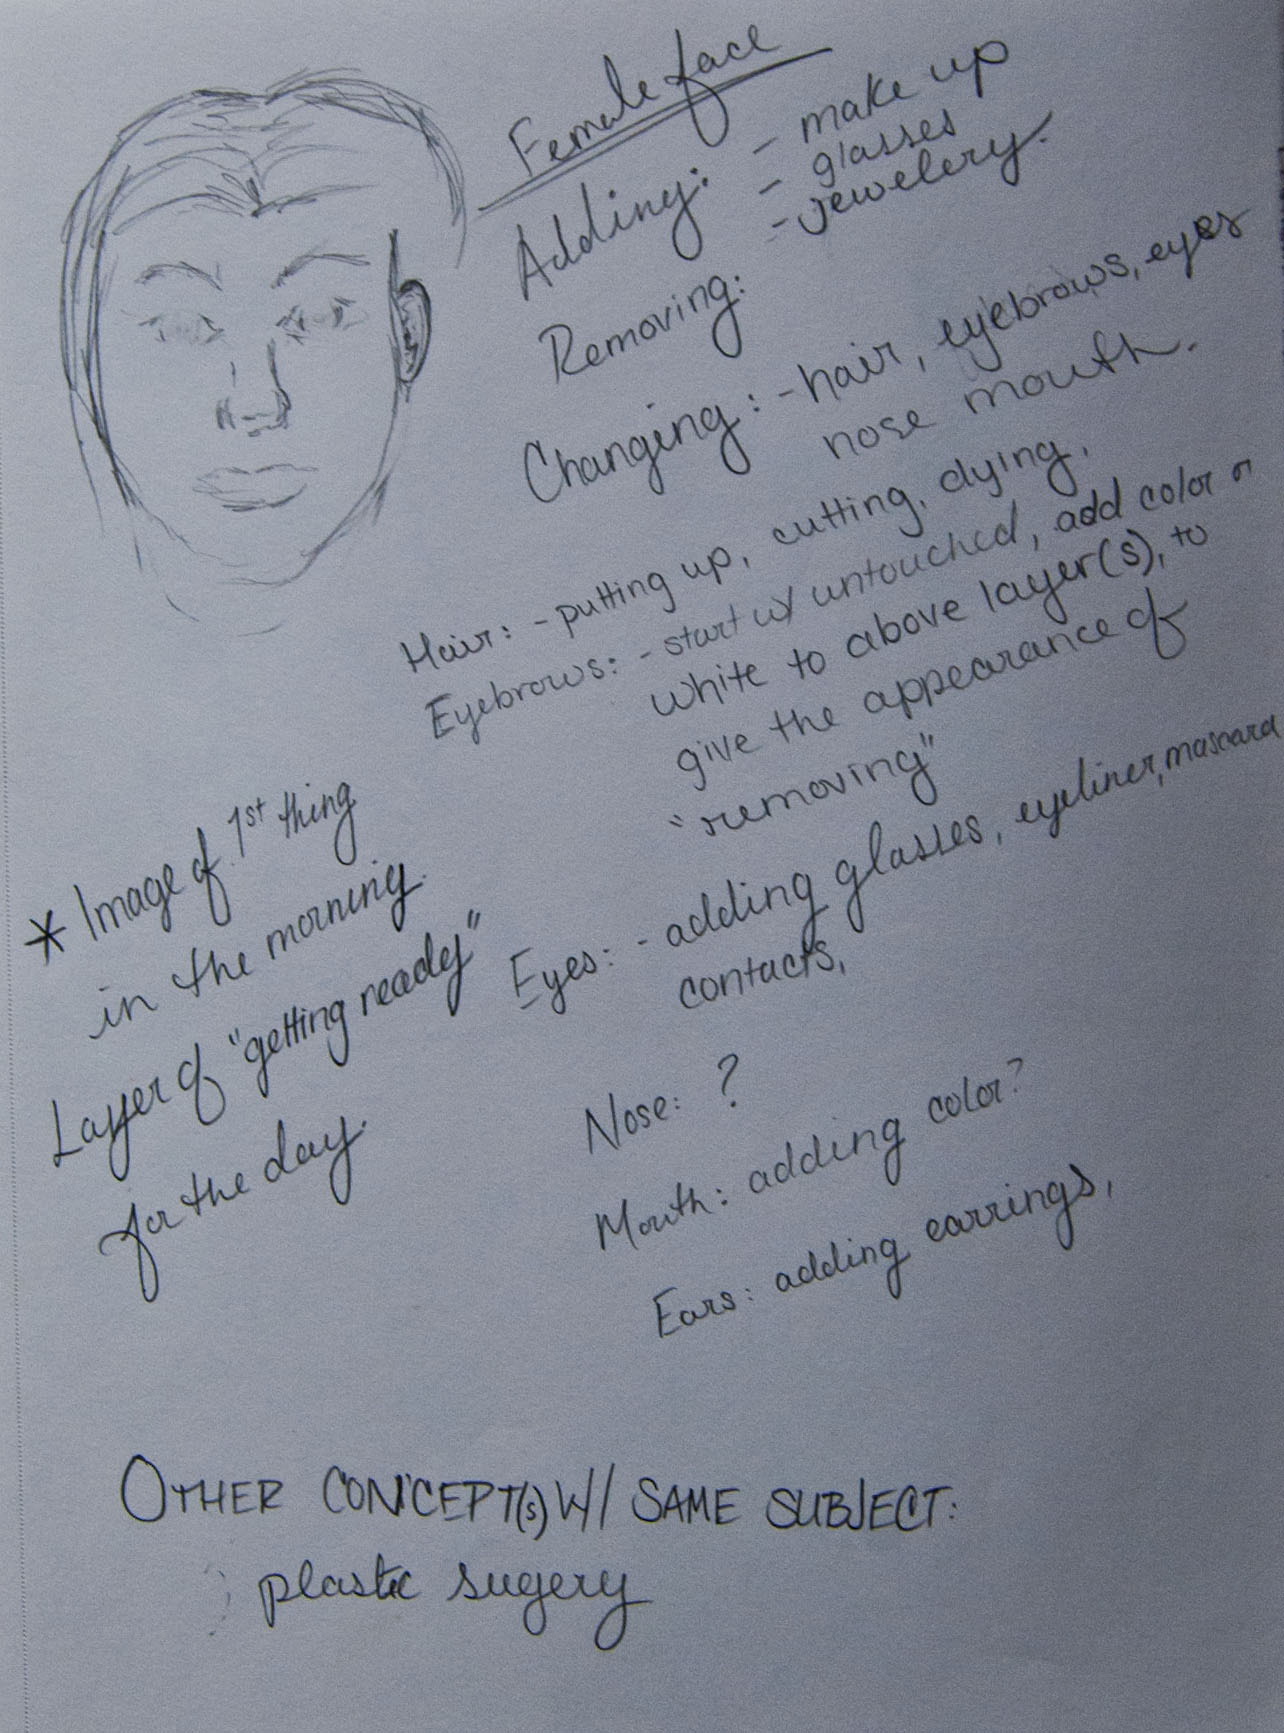 Female face
Adding: - make up
- glasses
- jewelery.
Removing:
Changing: - hair, eyebrows, eyes
nose mouth.
Hair: - putting up, cutting, dying,
Eyebrows: - start w/ untouched, add color or
white to above layer(s), to
give the appearance of
"removing"
Eyes: - adding glasses, eyeliner, mascara
contacts,
Nose: ?
Mouth: adding color?
Ears: adding earrings,
* Image of 1st thing
in the morning.
Layer of "getting ready"
for the day.
OTHER CONCEPT(S) W/ SAME SUBJECT:
plastic sugery